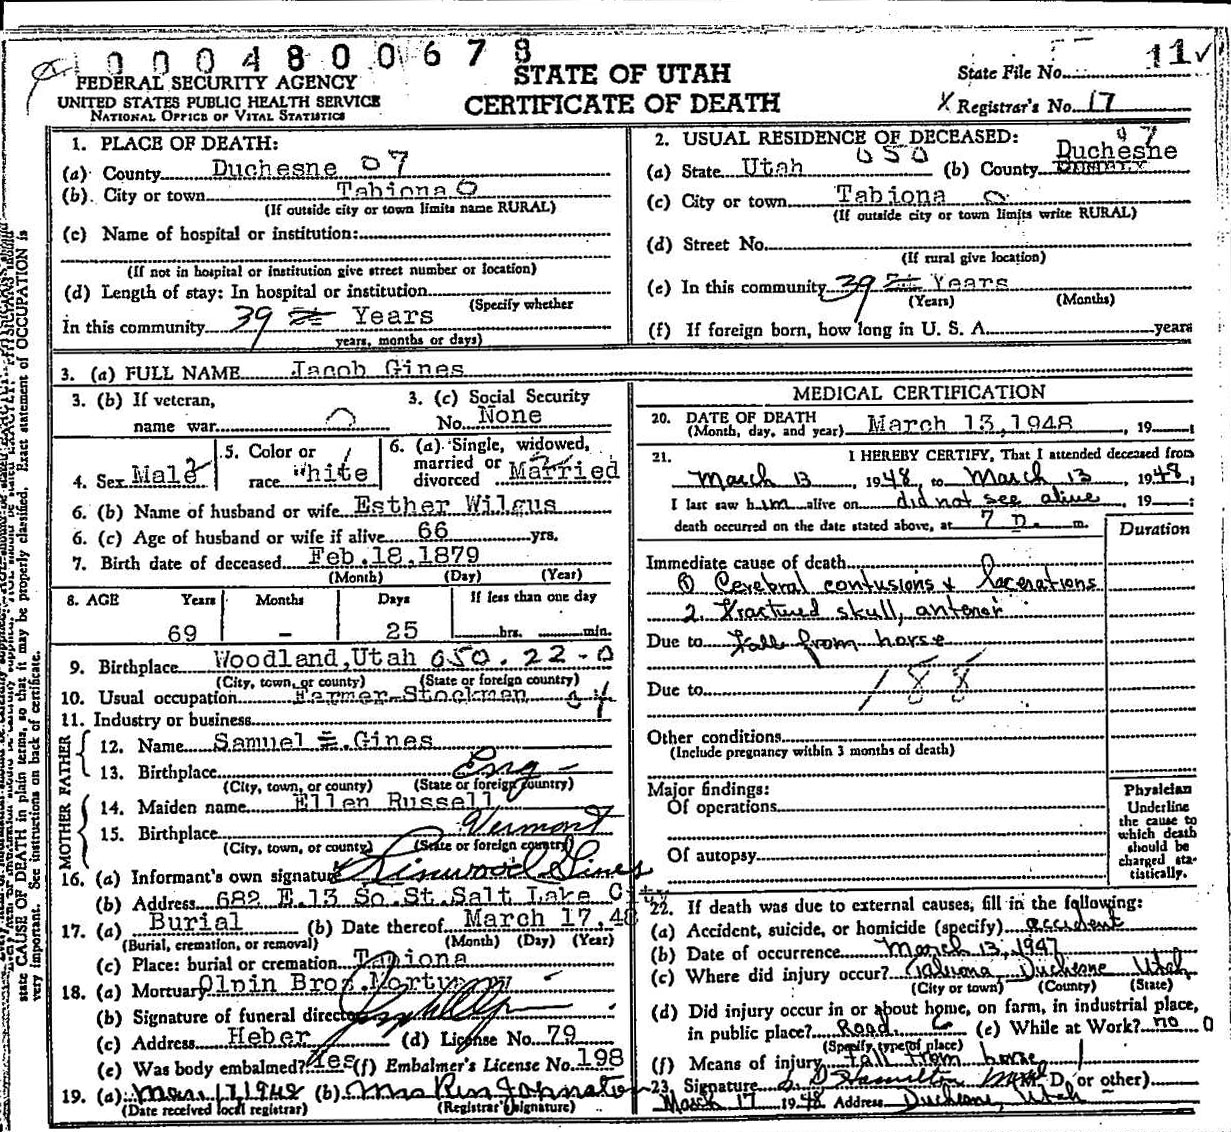 0 0 0 4 8 0 0 6 7 8
FEDERAL SECURITY AGENCY
UNITED STATES PUBLIC HEALTH SERVICE
NATIONAL OFFICE OF VITAL STATISTICS
STATE OF UTAH
CERTIFICATE OF DEATH
State File No. 11 ✓
X Registrar's No. 17
1. PLACE OF DEATH:
(a) County Duchesne 07
(b) City or town Tabiona 0
(If outside city or town limits name RURAL)
(c) Name of hospital or institution:
(If not in hospital or institution give street number or location)
(d) Length of stay: In hospital or institution
(Specify whether
In this community 39 Years
years, months or days)
2. USUAL RESIDENCE OF DECEASED:
(a) State Utah 050 (b) County Duchesne 07
(c) City or town Tabiona 0
(If outside city or town limits write RURAL)
(d) Street No.
(If rural give location)
(e) In this community 39 Years
(Years) (Months)
(f) If foreign born, how long in U. S. A. years
3. (a) FULL NAME Jacob Gines
3. (b) If veteran,
name war
3. (c) Social Security
No. None
4. Sex Male
5. Color or
race White
6. (a) Single, widowed,
married or
divorced Married
6. (b) Name of husband or wife Esther Wilgus
6. (c) Age of husband or wife if alive 66 yrs.
7. Birth date of deceased Feb.18.1879
(Month) (Day) (Year)
8. AGE Years Months Days If less than one day
69 - 25 hrs. min.
9. Birthplace Woodland,Utah 650.22-0
(City, town, or county) (State or foreign country)
10. Usual occupation Farmer-Stockmen 04
11. Industry or business
FATHER
12. Name Samuel E.Gines
13. Birthplace Eng-
(City, town, or county) (State or foreign country)
MOTHER
14. Maiden name Ellen Russell
15. Birthplace Vermont
(City, town, or county) (State or foreign country)
16. (a) Informant's own signature Linwood Gines
(b) Address 682 E.13 So.St.Salt Lake City
17. (a) Burial (b) Date thereof March 17,48
(Burial, cremation, or removal) (Month) (Day) (Year)
(c) Place: burial or cremation Tabiona
18. (a) Mortuary Olpin Bros.Mortuary
(b) Signature of funeral director
(c) Address Heber (d) License No. 79
(e) Was body embalmed? Yes (f) Embalmer's License No. 198
19. (a) Mar. 17 1948 (b) Mrs Johnston
(Date received local registrar) (Registrar's signature)
MEDICAL CERTIFICATION
20. DATE OF DEATH
(Month, day, and year) March 13,1948, 19
21. I HEREBY CERTIFY, That I attended deceased from
March 13, 1948, to March 13, 1948,
I last saw him alive on did not see alive, 19
death occurred on the date stated above, at 7 p. m.
Duration
Immediate cause of death
① Cerebral contusions & lacerations
2. Fractured skull, anterior
Due to Fall from horse
188
Due to
Other conditions
(Include pregnancy within 3 months of death)
Major findings:
Of operations
Of autopsy
Physician
Underline
the cause to
which death
should be
charged sta-
tistically.
22. If death was due to external causes, fill in the following:
(a) Accident, suicide, or homicide (specify) accident
(b) Date of occurrence March 13, 1947
(c) Where did injury occur? Tabiona Duchesne Utah
(City or town) (County) (State)
(d) Did injury occur in or about home, on farm, in industrial place,
in public place? Road (e) While at Work? no 0
(Specify type of place)
(f) Means of injury fall from horse
23. Signature Hamilton M. D. or other)
March 17 1948 Address Duchesne, Utah
state CAUSE OF DEATH in plain terms, so that it may be properly classified. Exact statement of OCCUPATION is
very important. See instructions on back of certificate.